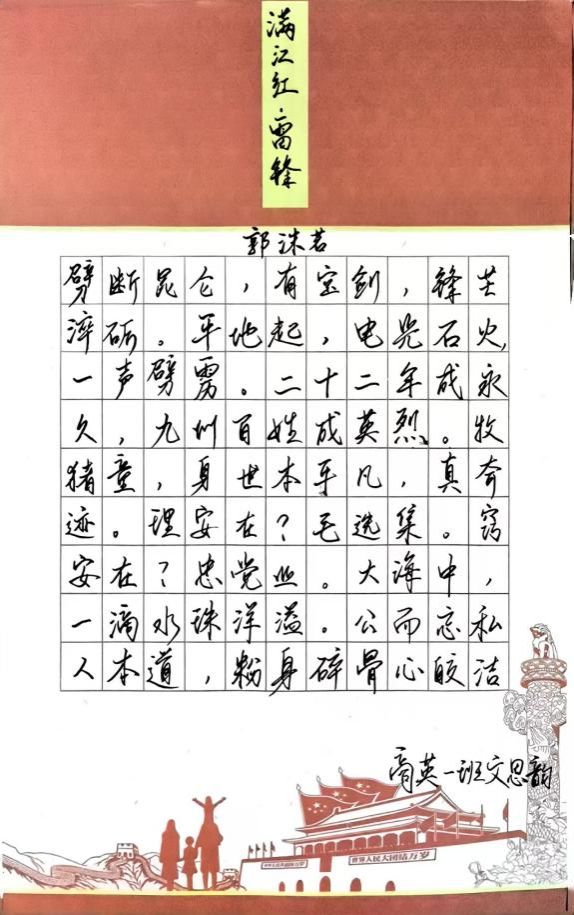 满江红·雷锋
郭沫若
劈断昆仑，有宝剑，锋芒
淬砺。平地起，电光石火，
一声劈雳。二十二年成永
久，九州百姓成英烈。牧
猪童，身世本平凡，真奇
迹。理安在？毛选集。窍
安在？忠党业。大海中，
一滴水珠洋溢。公而忘私
人本道，粉身碎骨心皎洁
商英一班文思韵
世界人民大团结万岁